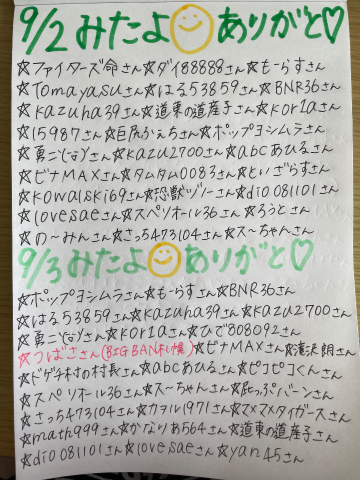 9/2みたよ ありがと♡
☆ファイターズ命さん☆ダイ88888さん☆もーらすさん
☆Tomayasuさん☆はる53859さん☆BNR36さん
☆kazuha39さん☆道東の道産子さん☆kor1aさん
☆15987さん☆巨尻かぇちさん☆ポップヨシムラさん
☆勇ご(^o^)さん☆kazu2700さん☆abcあひるさん
☆ビナMAXさん☆タムタム0083さん☆といざらすさん
☆kowalski69さん☆恐獣ヅノーさん☆dio081101さん
☆lovesaeさん☆スペリオール36さん☆ろうとさん
☆の〜みんさん☆さっち473104さん☆スーちゃんさん
9/3みたよ ありがと♡
☆ポップヨシムラさん☆もーらすさん☆BNR36さん
☆はる53859さん☆kazuha39さん☆kazu2700さん
☆勇ご(^o^)さん☆kor1aさん☆ひで808092さん
☆つばささん(BIGBAN札幌)☆ビナMAXさん☆滝沢朗さん
☆ドゲチ村の村長さん☆abcあひるさん☆ピコピコくんさん
☆スペリオール36さん☆スーちゃんさん☆屁っぷバーンさん
☆さっち473104さん☆カヲル1971さん☆マメマメタイガースさん
☆math999さん☆かなりあ564さん☆道東の道産子さん
☆dio081101さん☆lovesaeさん☆yan45さん